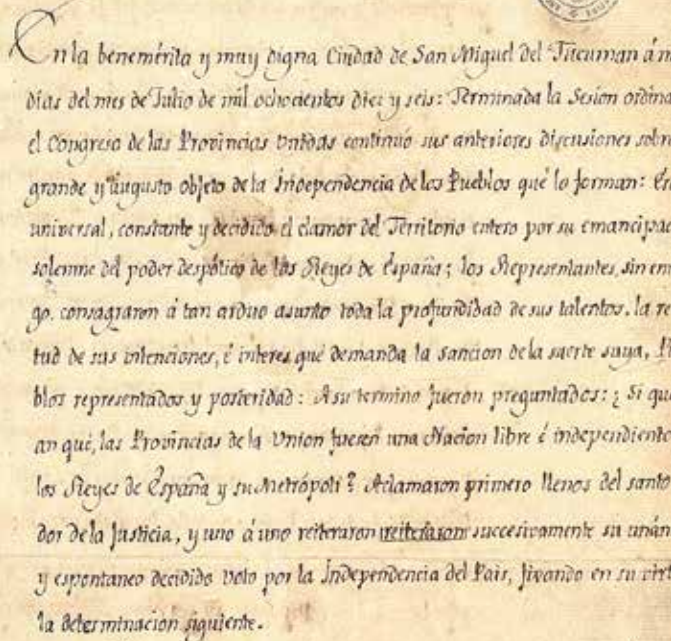 En la benemérita y muy digna Ciudad de San Miguel del Tucuman á n
dias del mes de Julio de mil ochocientos diez y seis: Terminada la Sesion ordina
el Congreso de las Provincias Unidas continuó sus anteriores discusiones sobre
grande y augusto objeto de la Independencia de los Pueblos qué lo forman: Er
universal, constante y decidido el clamor del Territorio entero por su emancipac
solemne del poder despótico de los Reyes de España; los Representantes, sin em
go, consagraron á tan arduo asunto toda la profundidad de sus talentos, la re
tud de sus intenciones, é interes que demanda la sancion de la suerte suya, P
blos representados y posteridad: A su termino fueron preguntados: ¿ Si que
an qué, las Provincias de la Union fuesen una Nacion libre é independiente
los Reyes de España y su Metrópoli? Aclamaron primero llenos del santo
dor de la Justicia, y uno á uno reiteraron reiteraron succesivamente su unán
y espontaneo decidido voto por la Independencia del Pais, fixando en su virt
la determinacion siguiente.